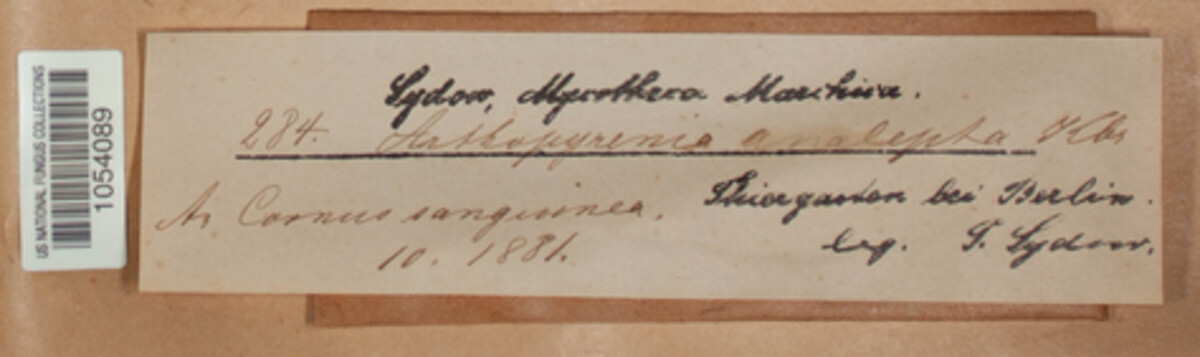 US NATIONAL FUNGUS COLLECTIONS
1054089
Sydow, Mycotheca Marchica.
284. Arthopyrenia analepta Kbr
An Cornus sanguinea.
Thiergarten bei Berlin.
10. 1881.
leg. P. Sydow.